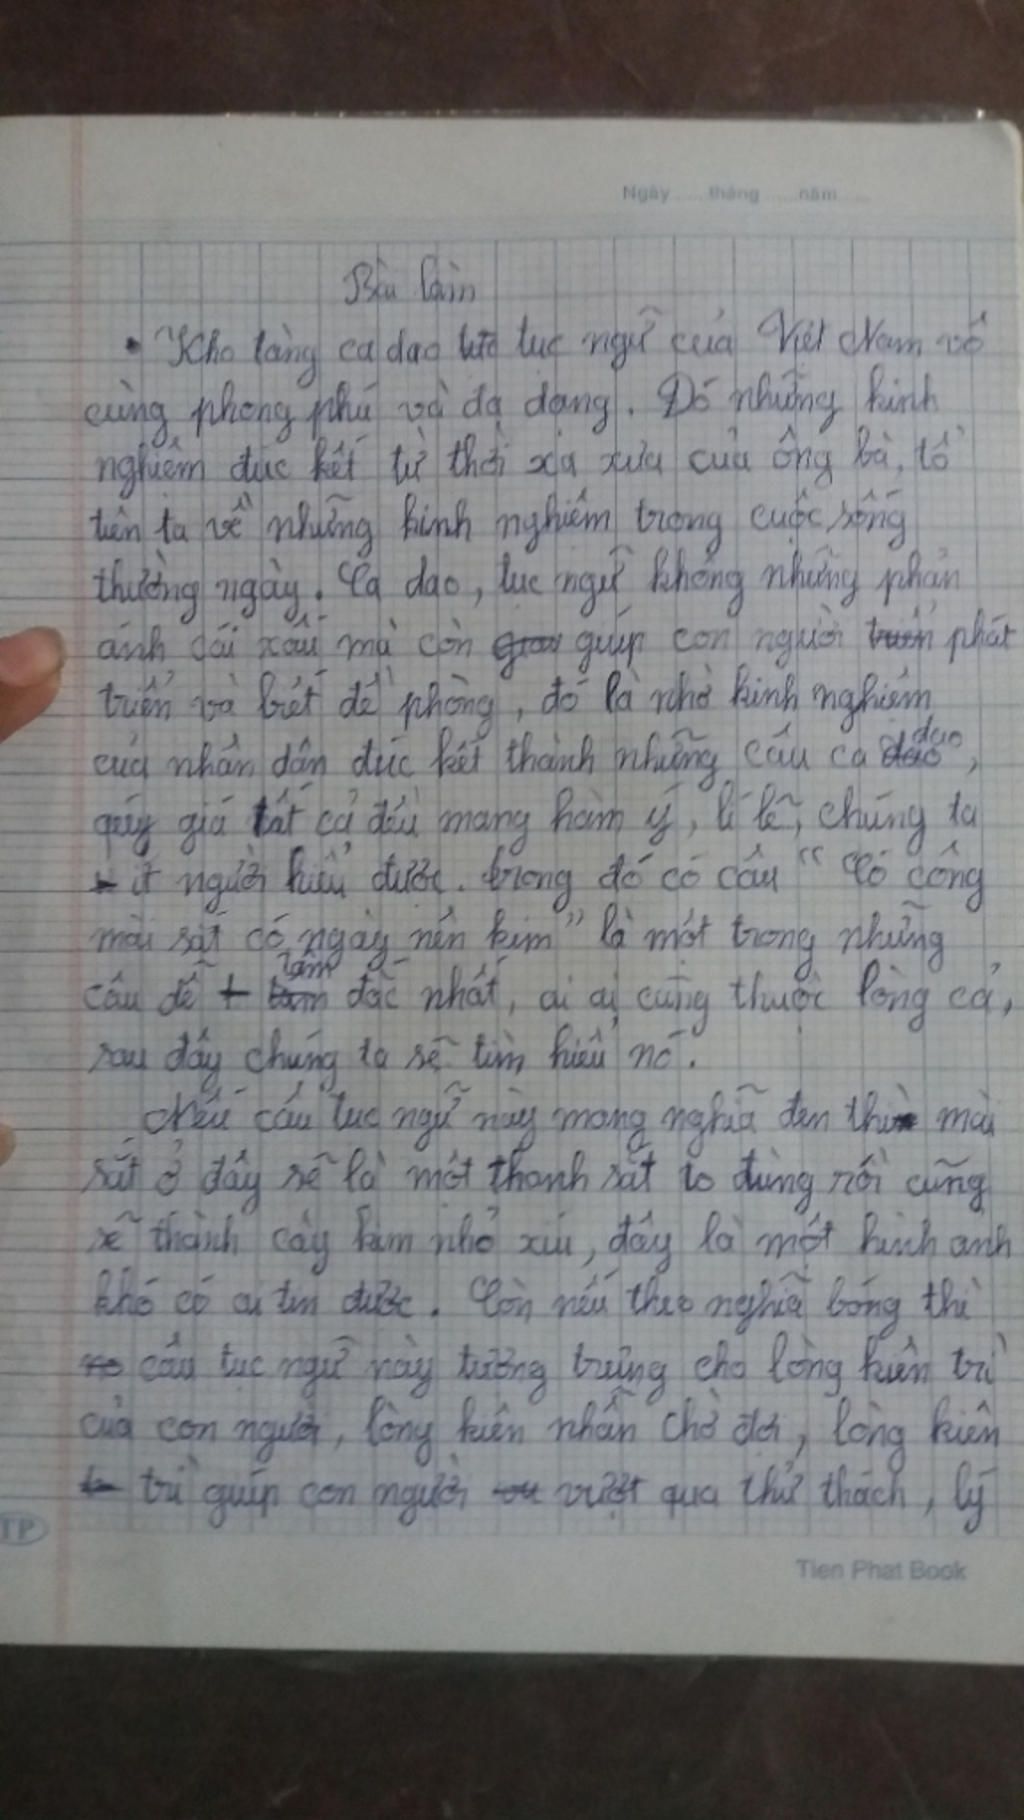 Ngày.....tháng.....năm.....
Bài làm
Kho tàng ca dao tục ngữ của Việt Nam vô
cùng phong phú và đa dạng. Đó những kinh
nghiệm đúc kết từ thời xa xưa của ông bà, tổ
tiên ta về những kinh nghiệm trong cuộc sống
thường ngày. Ca dao, tục ngữ không những phản
ánh cái xấu mà còn giúp con người phát
triển và biết đề phòng, đó là nhờ kinh nghiệm
của nhân dân đúc kết thành những câu ca dao,
quý giá tất cả đều mang hàm ý, lí lẽ, chúng ta
ít người hiểu được. trong đó có câu "Có công
mài sắt có ngày nên kim" là một trong những
câu dễ tâm đắc nhất, ai ai cũng thuộc lòng cả,
sau đây chúng ta sẽ tìm hiểu nó.
Nếu câu tục ngữ này mang nghĩa đen thì mài
sắt ở đây sẽ là một thanh sắt to đùng rồi cũng
sẽ thành cây kim nhỏ xíu, đây là một hình anh
khó có ai tin được. Còn nếu theo nghĩa bóng thì
câu tục ngữ này tượng trưng cho lòng kiên trì
của con người, lòng kiên nhẫn chờ đợi, lòng kiên
trì giúp con người vượt qua thử thách, lý
TP
Tien Phat Book